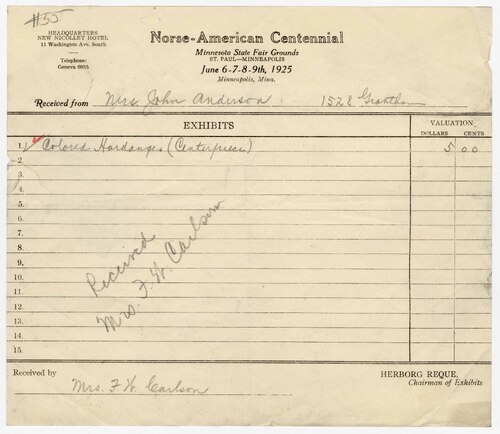 #55
HEADQUARTERS
NEW NICOLLET HOTEL
11 Washington Ave. South
Telephone:
Geneva 6935
Norse-American Centennial
Minnesota State Fair Grounds
ST. PAUL—MINNEAPOLIS
June 6-7-8-9th, 1925
Minneapolis, Minn.
Received from Mrs. John Anderson 1528 Grantham
EXHIBITS VALUATION
DOLLARS CENTS
1. ✓ Colored Hardanger (Centerpiece) 5 00
2.
3.
4.
5.
6.
7.
8.
9.
10.
11.
12.
13.
14.
15.
Received
Mrs. F. W. Carlson
Received by HERBORG REQUE,
Chairman of Exhibits
Mrs. F W. Carlson